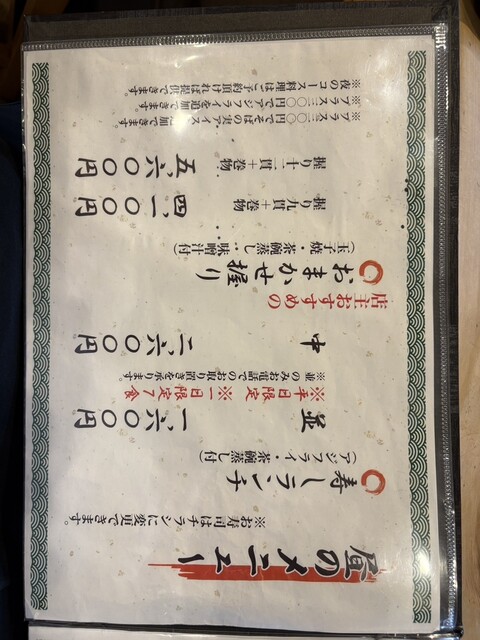 昼のメニュー
※お寿司はチラシに変更できます。
〇寿しランチ
(アジフライ・茶碗蒸し付)
並 一、六〇〇円
※平日限定※一日限定7食
※並のみお電話でのお取り置きを承ります。
中 二、六〇〇円
店主おすすめの
〇おまかせ握り
(玉子焼・茶碗蒸し・味噌汁付)
握り九貫+巻物 四、一〇〇円
握り十二貫+巻物 五、六〇〇円
※プラス
※プラス アジフライを追加できます。
※夜のコース料理はご予約頂ければ提供できます。